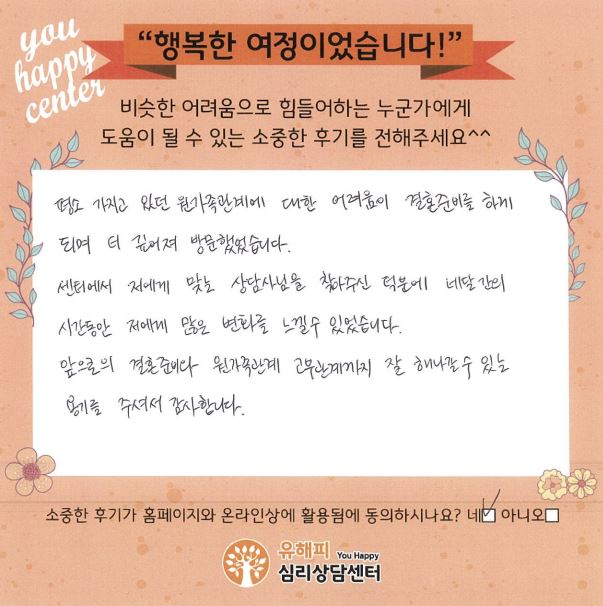 you
happy
center
“행복한 여정이었습니다!”
비슷한 어려움으로 힘들어하는 누군가에게
도움이 될 수 있는 소중한 후기를 전해주세요^^
평소 가지고 있던 원가족관계에 대한 어려움이 결혼준비를 하게
되며 더 깊어져 방문했었습니다.
센터에서 저에게 맞는 상담사님을 찾아주신 덕분에 네달간의
시간동안 저에게 많은 변화를 느낄수 있었습니다.
앞으로의 결혼준비다 원가족관계 고부관계까지 잘 해나갈 수 있는
용기를 주셔서 감사합니다.
소중한 후기가 홈페이지와 온라인상에 활용됨에 동의하시나요? 네☑ 아니오☐
유해피 You Happy
심리상담센터